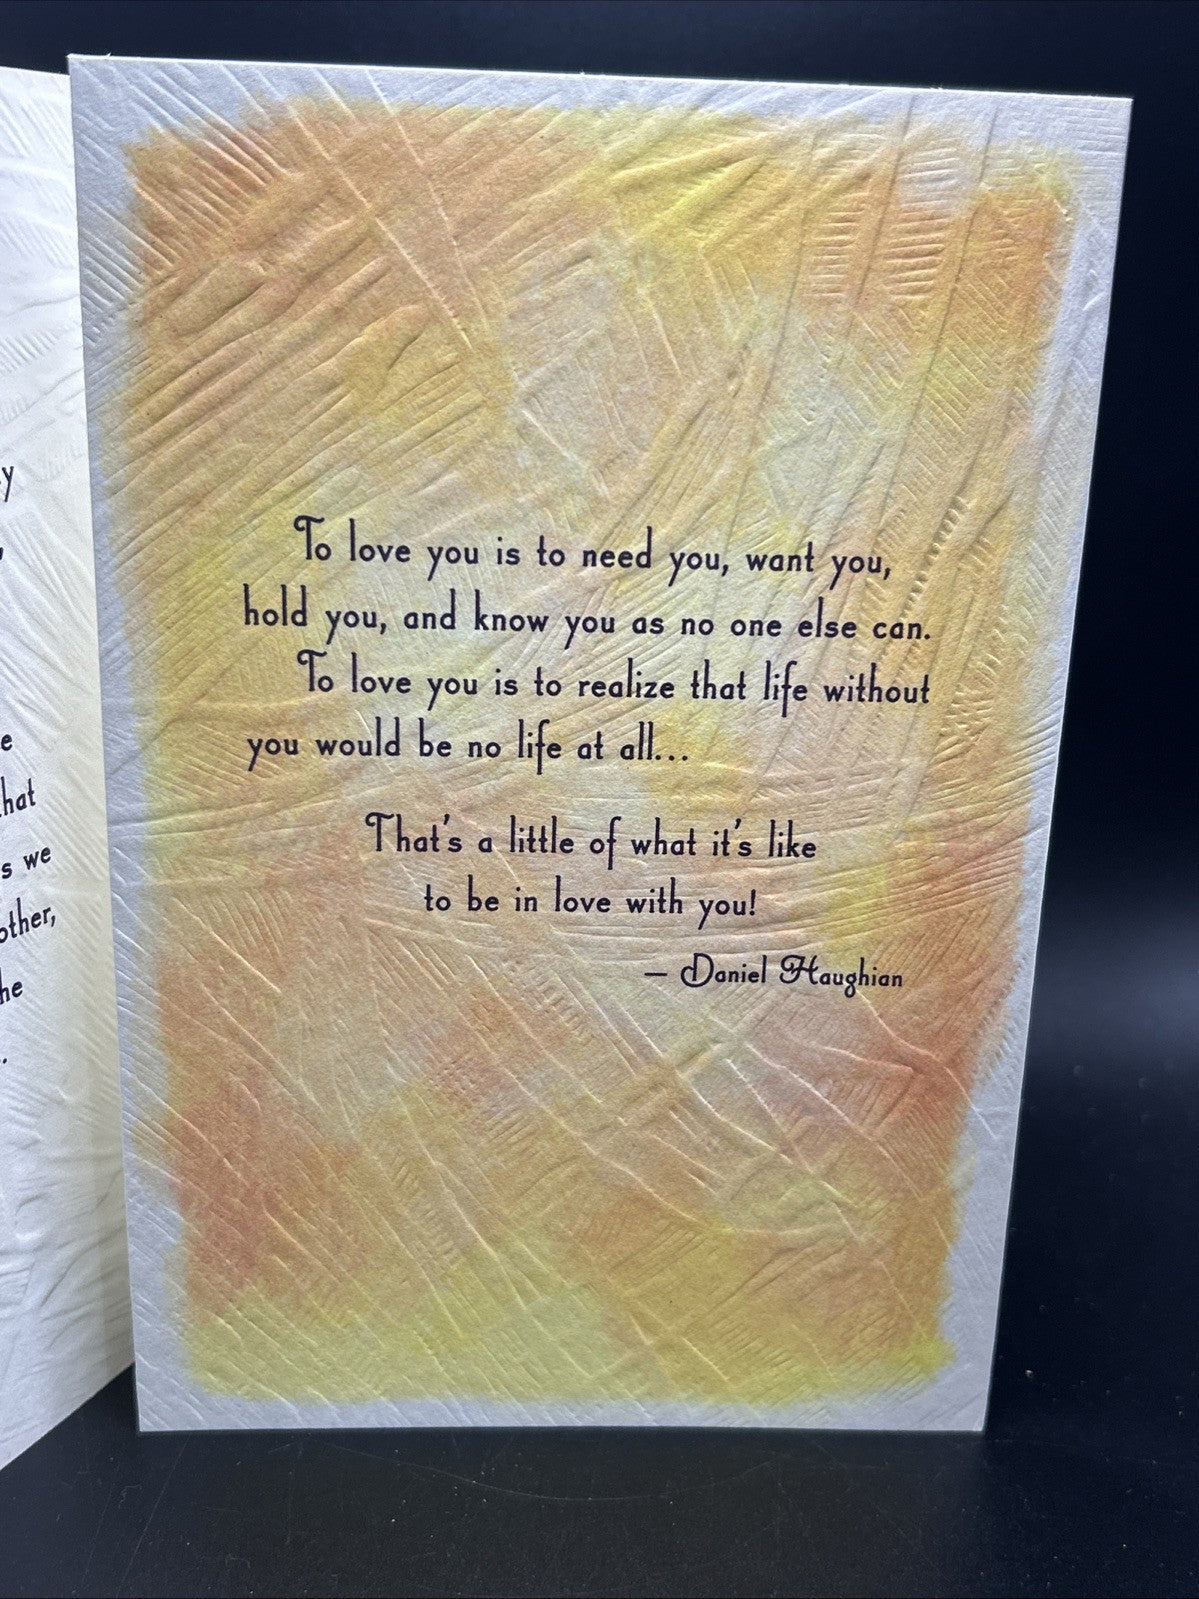 hat
s we
other,
he
To love you is to need you, want you,
hold you, and know you as no one else can.
To love you is to realize that life without
you would be no life at all...
That's a little of what it's like
to be in love with you!
— Daniel Haughian